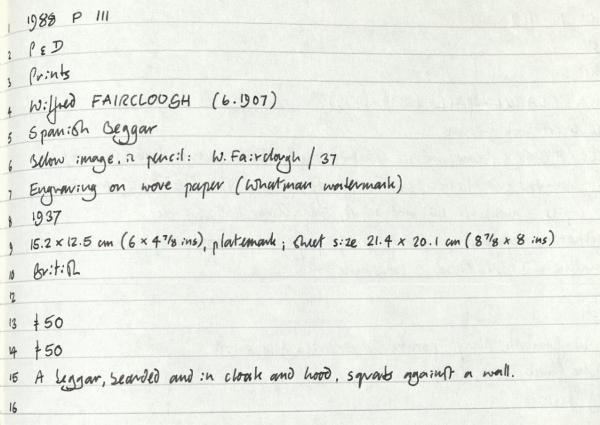 1 1988 P 111
2 P & D
3 Prints
4 Wilfred FAIRCLOUGH (b.1907)
5 Spanish Beggar
6 Below image, in pencil: W. Fairclough / 37
7 Engraving on wove paper (Whatman watermark)
8 1937
9 15.2 x 12.5 cm (6 x 4 7/8 ins), platemark; sheet size 21.4 x 20.1 cm (8 7/8 x 8 ins)
10 British
12
13 £50
14 £50
15 A beggar, bearded and in cloak and hood, squats against a wall.
16